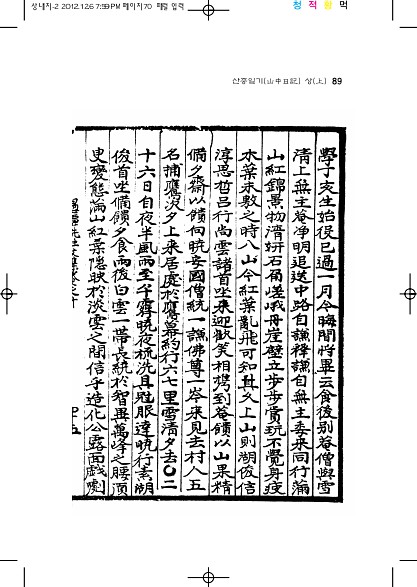 상내지-2 2012.12.6 7:59 PM 페이지70 패럴 입력
청 적 황 먹
산중일기(山中日記) 상(上) 89
學丁亥生始役已過一月今晦間將畢云食後別菴僧與雪
淸上無主菴淨明追送中路自謙釋謙自無主委來同行滿
山紅錦景物淸妍石角嵯峨丹崖壁立步步賞玩不覺身疲
木葉未敷之時入山今紅葉亂飛可知其久上山則湖俊信
淳思哲呂行尚雲諸首坐來迎歡笑相携到菴饋以山果精
備夕齋以饋向晩安國僧統一謙佛尊一岑來見去村人五
名捕鷹次夕上來居處於鷹幕約行六七里雪淸夕去〇二
十六日自夜半風雨至午霽晩夜梳洗具冠服達曉行素湖
俊首坐備饋夕食雨後白雲一帶長統於智異萬峰之腰頂
史變態滿山紅葉隱映於淡雲之間信乎造化公露面戲劇